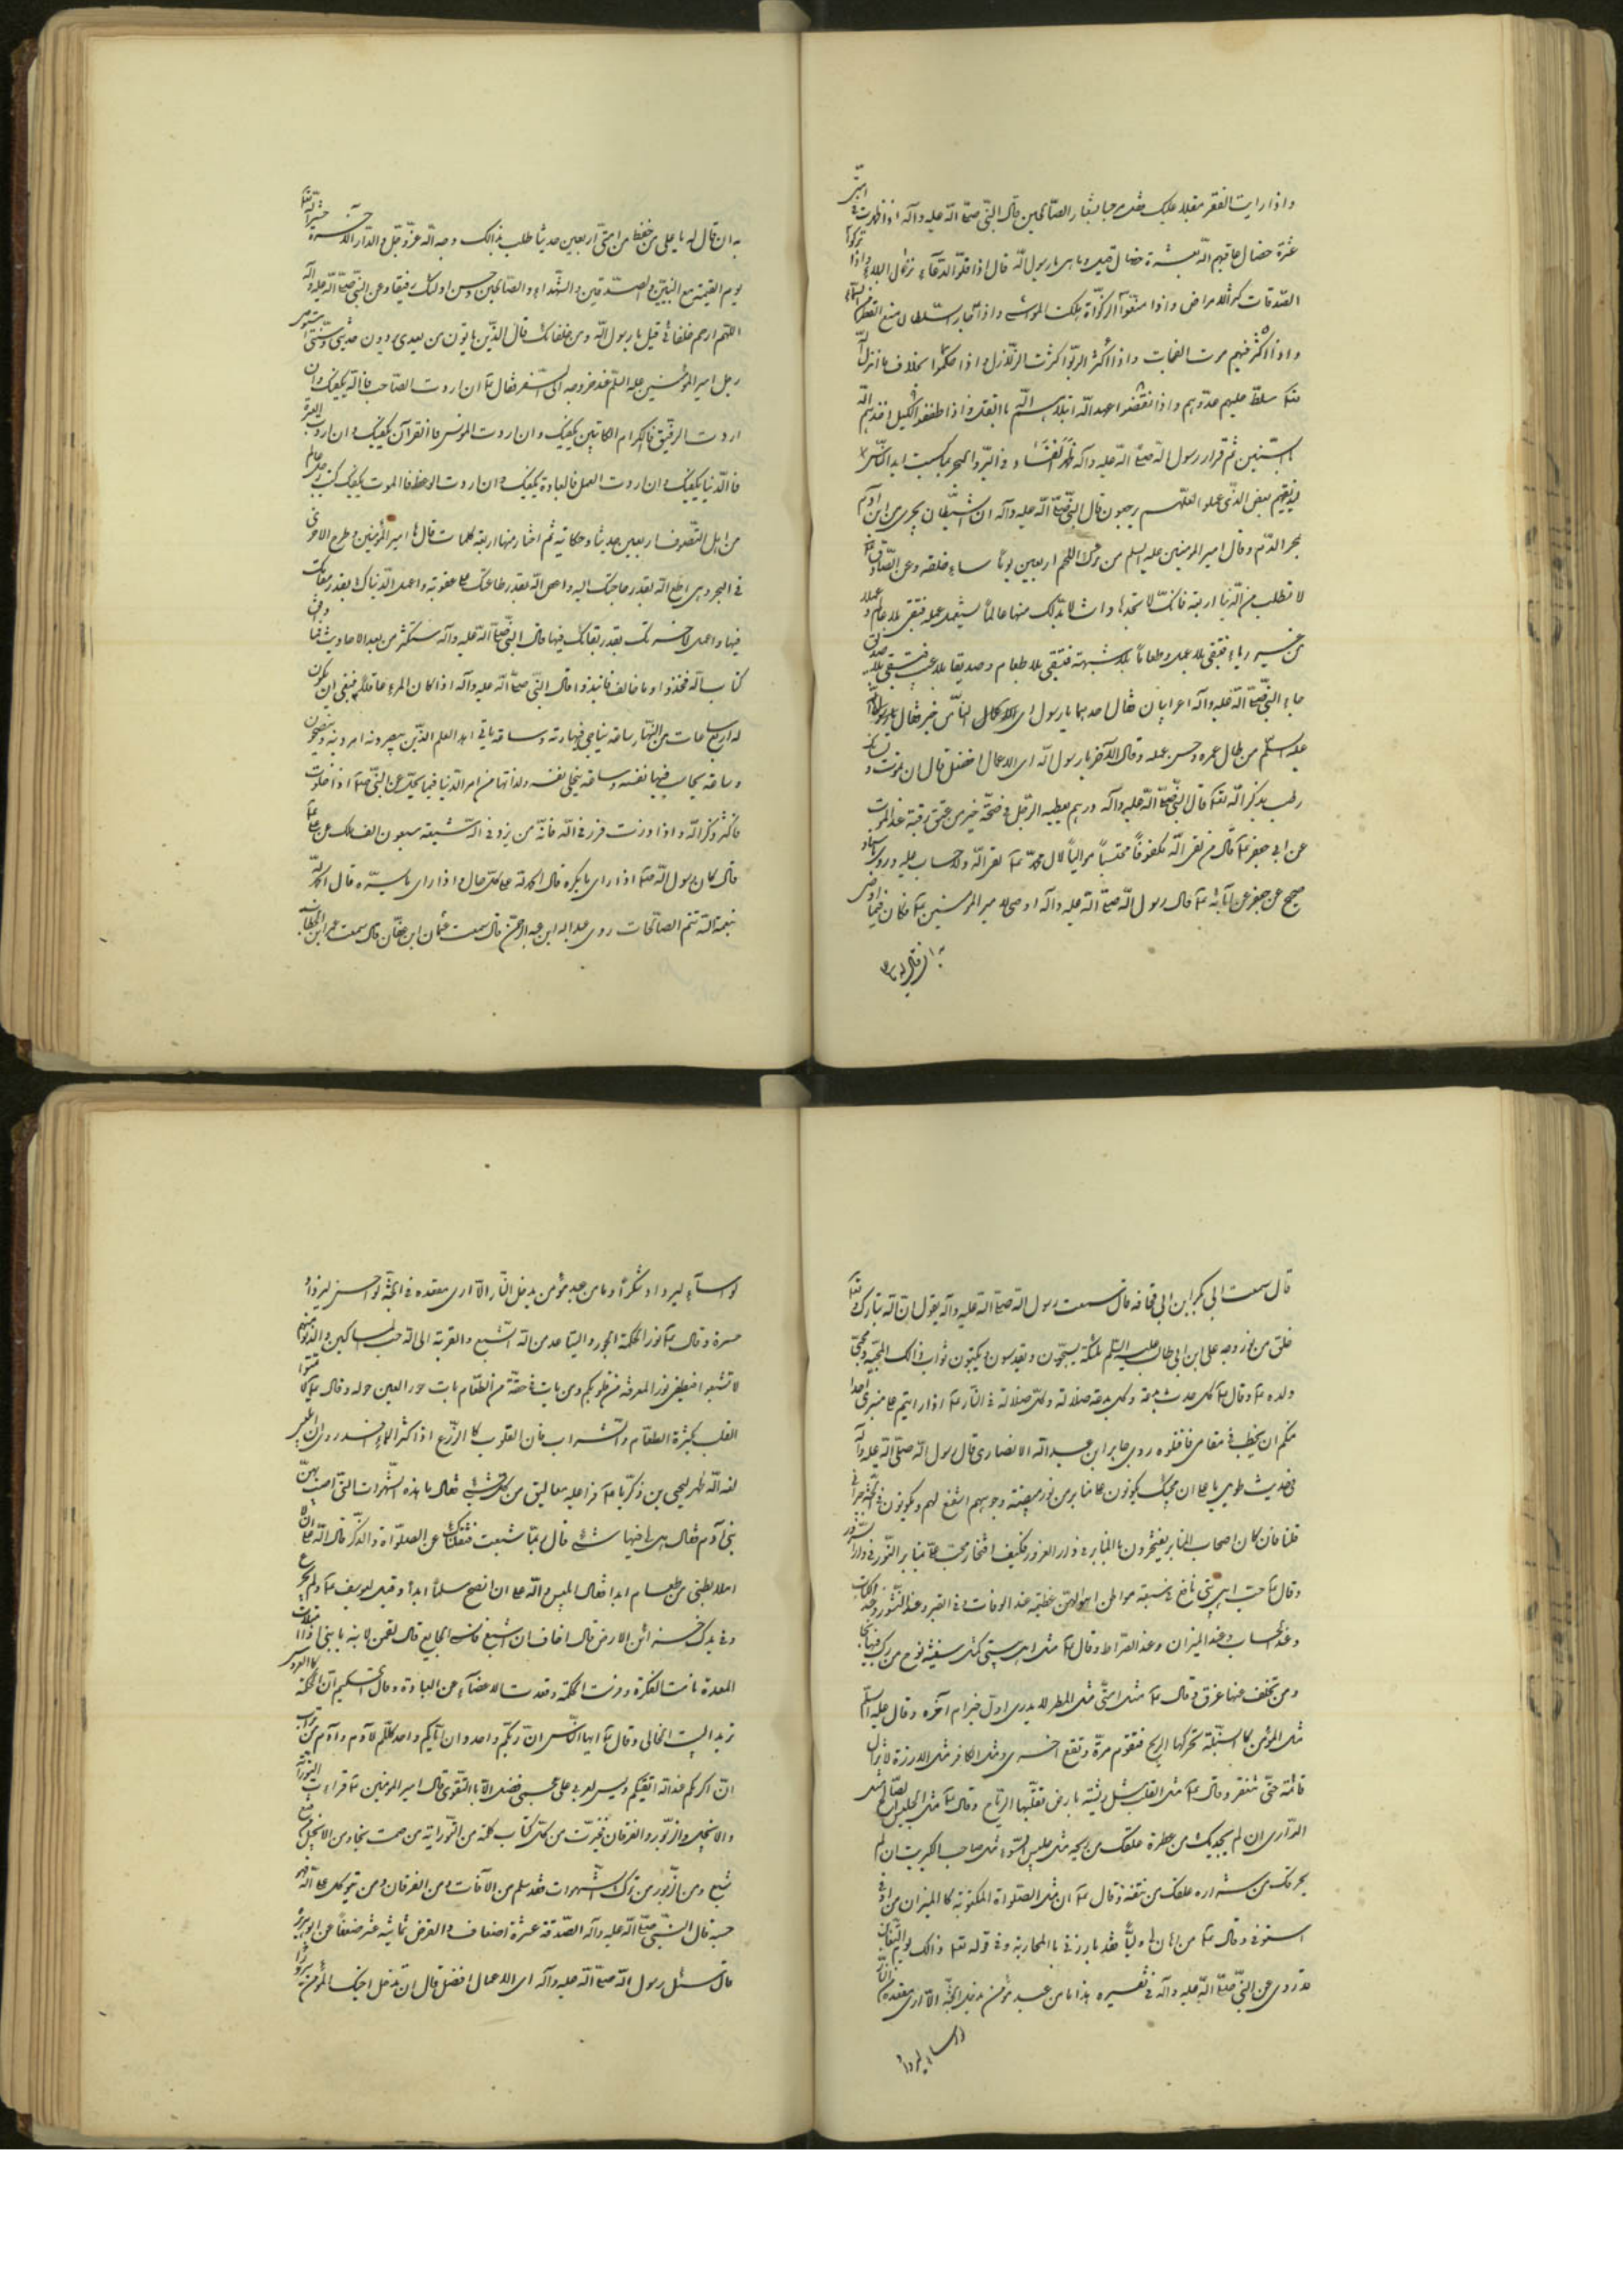 واذا رايت الفقر مقبلا عليك فقل مرحبا بشعار الصالحين قال النبي صلى الله عليه وآله اذا ظهرت في امتي
عشرة خصال عاقبهم الله بعشرة خصال قيل وما هي يا رسول الله قال اذا قللوا الدعاء نزل البلاء واذا تركوا
الصدقات كثر الامراض واذا منعوا الزكوة هلكت المواشي واذا جار السلطان منع القطر من السماء
واذا اكثر فيهم موت الفجات واذا اكثر الربوا كثرت الزلازل واذا حكموا بخلاف ما انزل الله
تعالى سلط عليهم عدوهم واذا نقضوا عهد الله ابتلاهم الله بالقتل واذا طففوا الكيل اخذهم الله
بالسنين ثم قرا رسول الله صلى الله عليه وآله ظهر الفساد في البر والبحر بما كسبت ايدي الناس
ليذيقهم بعض الذي عملوا لعلهم يرجعون قال النبي صلى الله عليه وآله ان الشيطان يجري من ابن آدم
مجر الدم وقال امير المومنين عليه السلم من ترك اللحم اربعين يوما ساء خلقه وعن الصادق
لا تطلب من الدنيا اربعة فانك لا تجدها وانت لا بد لك منها عالما يستعمل علمه فتبقى بلا عالم وعملا
من غير رياء فتبقى بلا عمل وطعاما بلا شبهة فتبقى بلا طعام وصديقا بلا عيب فتبقى بلا صديق
جاء النبي صلى الله عليه وآله اعرابيان فقال احدهما يا رسول الله اي الناس خير فقال
عليه السلم من طال عمره وحسن عمله وقال الآخر يا رسول الله اي الاعمال افضل قال ان تموت ولسانك
رطب بذكر الله تعالى قال النبي صلى الله عليه وآله درهم يعطيه الرجل في صحته خير من عتق رقبة عند الموت
عن ابي جعفر ع قال من لقى الله مكفوفا محتسبا مواليا لآل محمد ع لقى الله ولا حساب عليه وروى باسناد
صحيح عن جعفر عن آبائه ع قال رسول الله صلى الله عليه وآله اوصى لامير المومنين ع فكان فيما اوصى
به ان قال له يا علي
به ان قال له يا علي من حفظ من امتي اربعين حديثا طلب بذالك وجه الله عز وجل والدار الآخرة حشره الله تعالى
يوم القيمة مع النبيين والصديقين والشهداء والصالحين وحسن اولئك رفيقا وعن النبي صلى الله عليه وآله
اللهم ارحم خلفائي قيل يا رسول الله ومن خلفائك قال الذين ياتون من بعدي يروون حديثي وسنتي
رجل امير المؤمنين عليه السلم عند خروجه الى السفر فقال ع ان اردت الصاحب فالله يكفيك وان
اردت الرفيق فالكرام الكاتبين يكفيك وان اردت المونس فالقرآن يكفيك وان اردت العبرة
فالدنيا يكفيك وان اردت العمل فالعبادة يكفيك وان اردت الوعظ فالموت يكفيك كتب رجل عالم
من اهل التصوف اربعين حديثا وحكاية ثم اختار منها اربعة كلمات قال ها امير المؤمنين وطرح الاخرى
في البحر وهي اطع الله بقدر حاجتك اليه واعص الله بقدر طاقتك على عقوبته واعمل لدنياك بقدر مقامك
فيها واعمل لآخرتك بقدر بقائك فيها قال النبي صلى الله عليه وآله ستكثر من بعدي الاحاديث فما وافق
كتاب الله فخذوا وما خالف فانبذوا قال النبي صلى الله عليه وآله اذا كان المرء عاقلا فينبغي ان يكون
له اربع ساعات من النهار ساعة يناجي فيها ربه وساعة ياتي اهل العلم الذين يبصرونه امر دينه وينصحون
وساعة يحاسب فيها نفسه وساعة يخلي نفسه ولذاتها من امر الدنيا فيما يحل عن النبي صلعم اذا خلوت
فاكثر ذكر الله واذا زرت فزر في الله فانه من يزور في الله شيعه سبعون الف ملك عن علي ع
قال كان رسول الله صلعم اذا راى ما يكره قال الحمد لله على كل حال واذا راى ما يسره قال الحمد لله
بنعمته تتم الصالحات روى عبد الله ابن عبد الرحمن قال سمعت عثمان ابن عفان قال سمعت عمر ابن الخطاب
قال سمعت ابي بكر ابن ابي قحافه قال سمعت رسول الله صلى الله عليه وآله يقول ان الله تبارك وتعالى
خلق من نور وجه علي ابن ابي طالب عليه السلم ملئكة يسبحون ويقدسون ويكتبون ثواب ذالك لمحبيه ومحبي
ولده ع وقال ع كل حدث بدعة وكل بدعة ضلالة وكل ضلالة في النار ع اذا رايتم على منبري احدا
منكم ان يخطب في مقامي فاقتلوه روى جابر ابن عبد الله الانصاري قال رسول الله صلى الله عليه وآله
في حديث طويل يا علي ان محبيك يكونون على منابر من نور مبيضة وجوههم اشفع لهم ويكونون في الجنة جيراني
قلنا فان كان اصحاب المنابر يفتخرون بالمنابر في دار الغرور فكيف افتخار محب علي بمنابر النور في دار السرور
وقال ع حب اهل بيتي نافع في سبعة مواطن اهوالهن عظيمة عند الوفات وفي القبر وعند النشور وعند الكتاب
وعند الحساب وعند الميزان وعند الصراط وقال ع مثل اهل بيتي كمثل سفينة نوح من ركب فيها نجا
ومن تخلف عنها غرق وقال ع مثل امتي مثل المطر لا يدرى اوله خير ام آخره وقال عليه السلم
مثل المؤمن كالسنبلة تحركها الريح فتقوم مرة وتقع اخرى ومثل الكافر مثل الارزة لا تزال
قائمة حتى تنقعر وقال ع مثل القلب مثل ريشة بارض تقلبها الرياح وقال ع مثل الجليس الصالح مثل
الداري ان لم يجديك من عطره علقك من ريحه مثل جليس السوء مثل صاحب الكير ان لم
يحرقك من شراره علقك من نتنه وقال ع ان مثل الصلواة المكتوبة كالميزان من اوفى
استوفى وقال ع من اهان لي وليا فقد بارزني بالمحاربة وفي قوله تعالى ذالك يوم التغابن
قد روى عن النبي صلى الله عليه وآله في تفسيره هذا ما من عبد مؤمن يدخل الجنة الا ارى مقعده من النار
لو اساء ليزداد
لو اساء ليزداد شكرا وما من عبد مؤمن يدخل النار الا ارى مقعده في الجنة لو احسن ليزداد
حسرة وقال ع نور الحكمة الجوع والتباعد من الله الشبع والقربة الى الله حب المساكين والدنو منهم
لا تشبعوا فيطفى نور المعرفة من قلوبكم ومن بات في خفة من الطعام بات حور العين حوله وقال ع لا تميتوا
القلب بكثرة الطعام والشراب فان القلوب كالزرع اذا كثر الماء فسد روى ان ابليس
لعنه الله ظهر ليحيى بن زكريا ع فراى عليه معاليق من كل شيء فقال ما هذه الشهوات التي اصبت بهن
بني آدم فقال هل لي فيها شيء قال ربما شبعت فثقلناك عن الصلواة والذكر قال لله علي ان لا
املا بطني من طعام ابدا فقال ابليس ولله علي ان انصح مسلما ابدا وقيل ليوسف ع لم تجوع
وفي يدك خزائن الارض قال اخاف ان اشبع فانسى الجايع قال لقمن لابنه يا بني اذا امتلات
المعدة نامت الفكرة وخرست الحكمة وقعدت الاعضاء عن العبادة وقال ان الحكمة كالعروس
تريد البيت الخالي وقال ع ايها الناس ان ربكم واحد وان اباكم واحد كلكم لآدم وآدم من تراب
ان اكرمكم عند الله اتقيكم وليس لعربي على عجمي فضل الا بالتقوى قال امير المومنين ع قراءت التورية
والانجيل والزبور والفرقان فاخترت من كل كتاب كلمة من التوراية من صمت نجا ومن الانجيل من قنع
شبع ومن الزبور من ترك الشهوات فقد سلم من الآفات ومن الفرقان ومن يتوكل على الله فهو
حسبه قال النبي صلى الله عليه وآله الصدقة عشرة اضعاف والقرض ثمانية عشر ضعفا عن ابو هريرة
قال سئل رسول الله صلى الله عليه وآله اي الاعمال افضل قال ان تدخل اخيك المؤمن سرورا